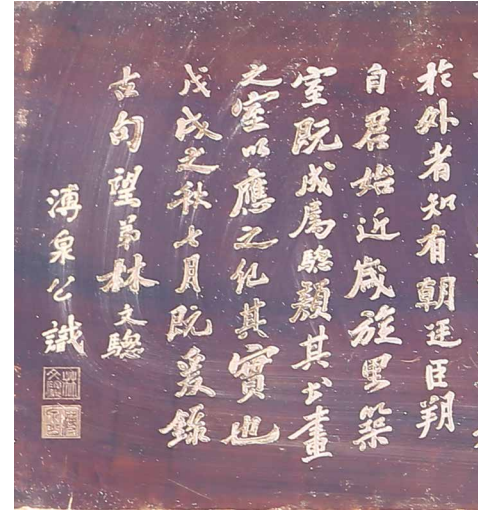 於外者知有朝廷臣翔
自君始近歲旋里築
室既成屬驄顏其書畫
之室以應之紀其實也
戊戌之秋七月既爰錄
古句望弟林文驄
溥泉公識